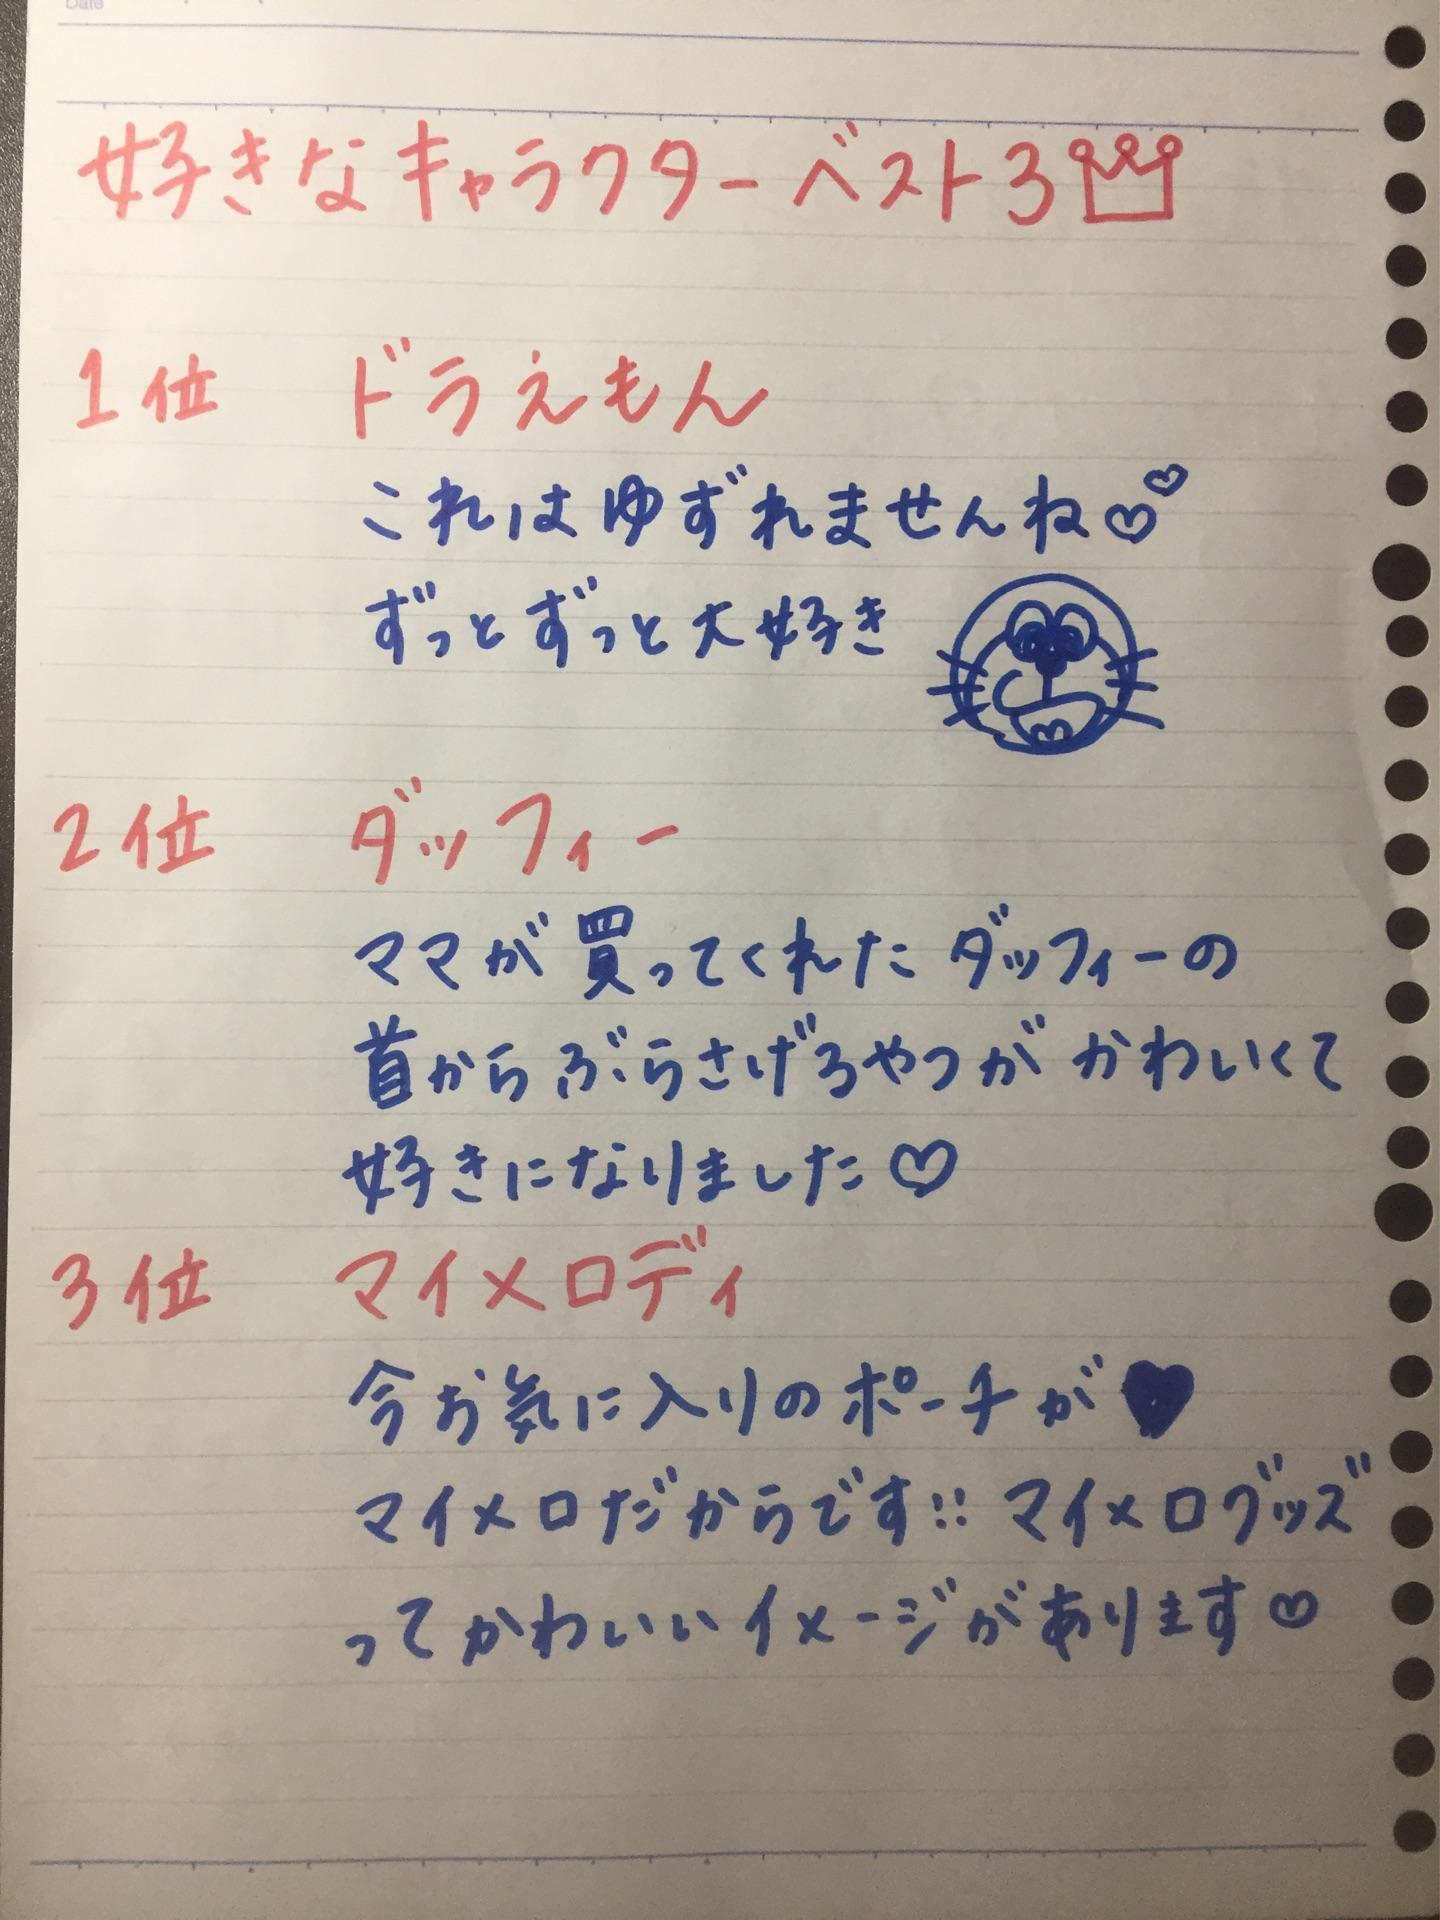 Date
好きなキャラクターベスト3
1位 ドラえもん
これはゆずれませんね♡♡
ずっとずっと大好き
2位 ダッフィー
ママが買ってくれたダッフィーの
首からぶらさげるやつがかわいくて
好きになりました♡
3位 マイメロディ
今お気に入りのポーチが♥
マイメロだからです!! マイメログッズ
ってかわいいイメージがあります♡